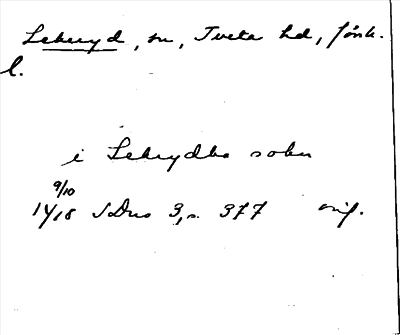 Lekeryd, sn, Tveta hd, Jönk.
l.
i Lekrydha sokn
9/10
1418 SDns 3, s. 377 orig.